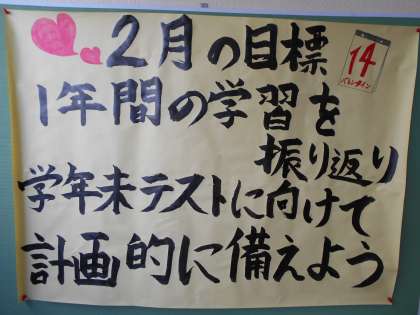 2月の目標
14
バレンタイン
1年間の学習を
振り返り
学年末テストに向けて
計画的に備えよう